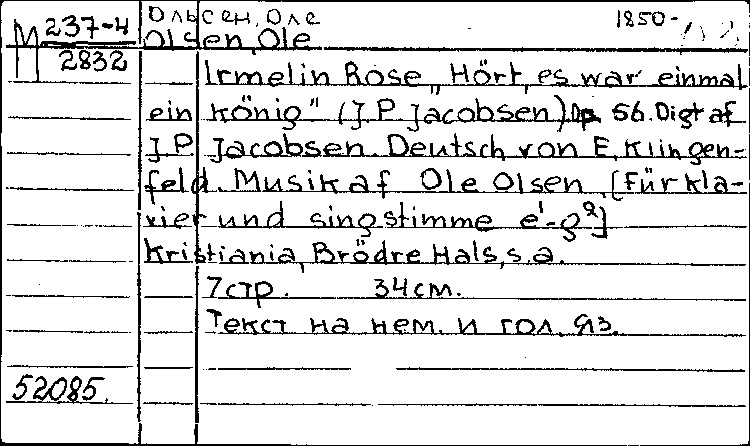 М 237-4
2832
Ольсен, Оле 1850-
Olsen, Ole
Irmelin Rose „Hört, es war einmal
ein König" (J. P. Jacobsen) Op. 56. Digt af
J. P. Jacobsen. Deutsch von E. Klingen-
feld. Musik af Ole Olsen. [Für Kla-
vier und singstimme e¹-g²]
Kristiania, Brödre Hals, s. a.
7 стр. 34 см.
Текст на нем. и гол. яз.
52085.